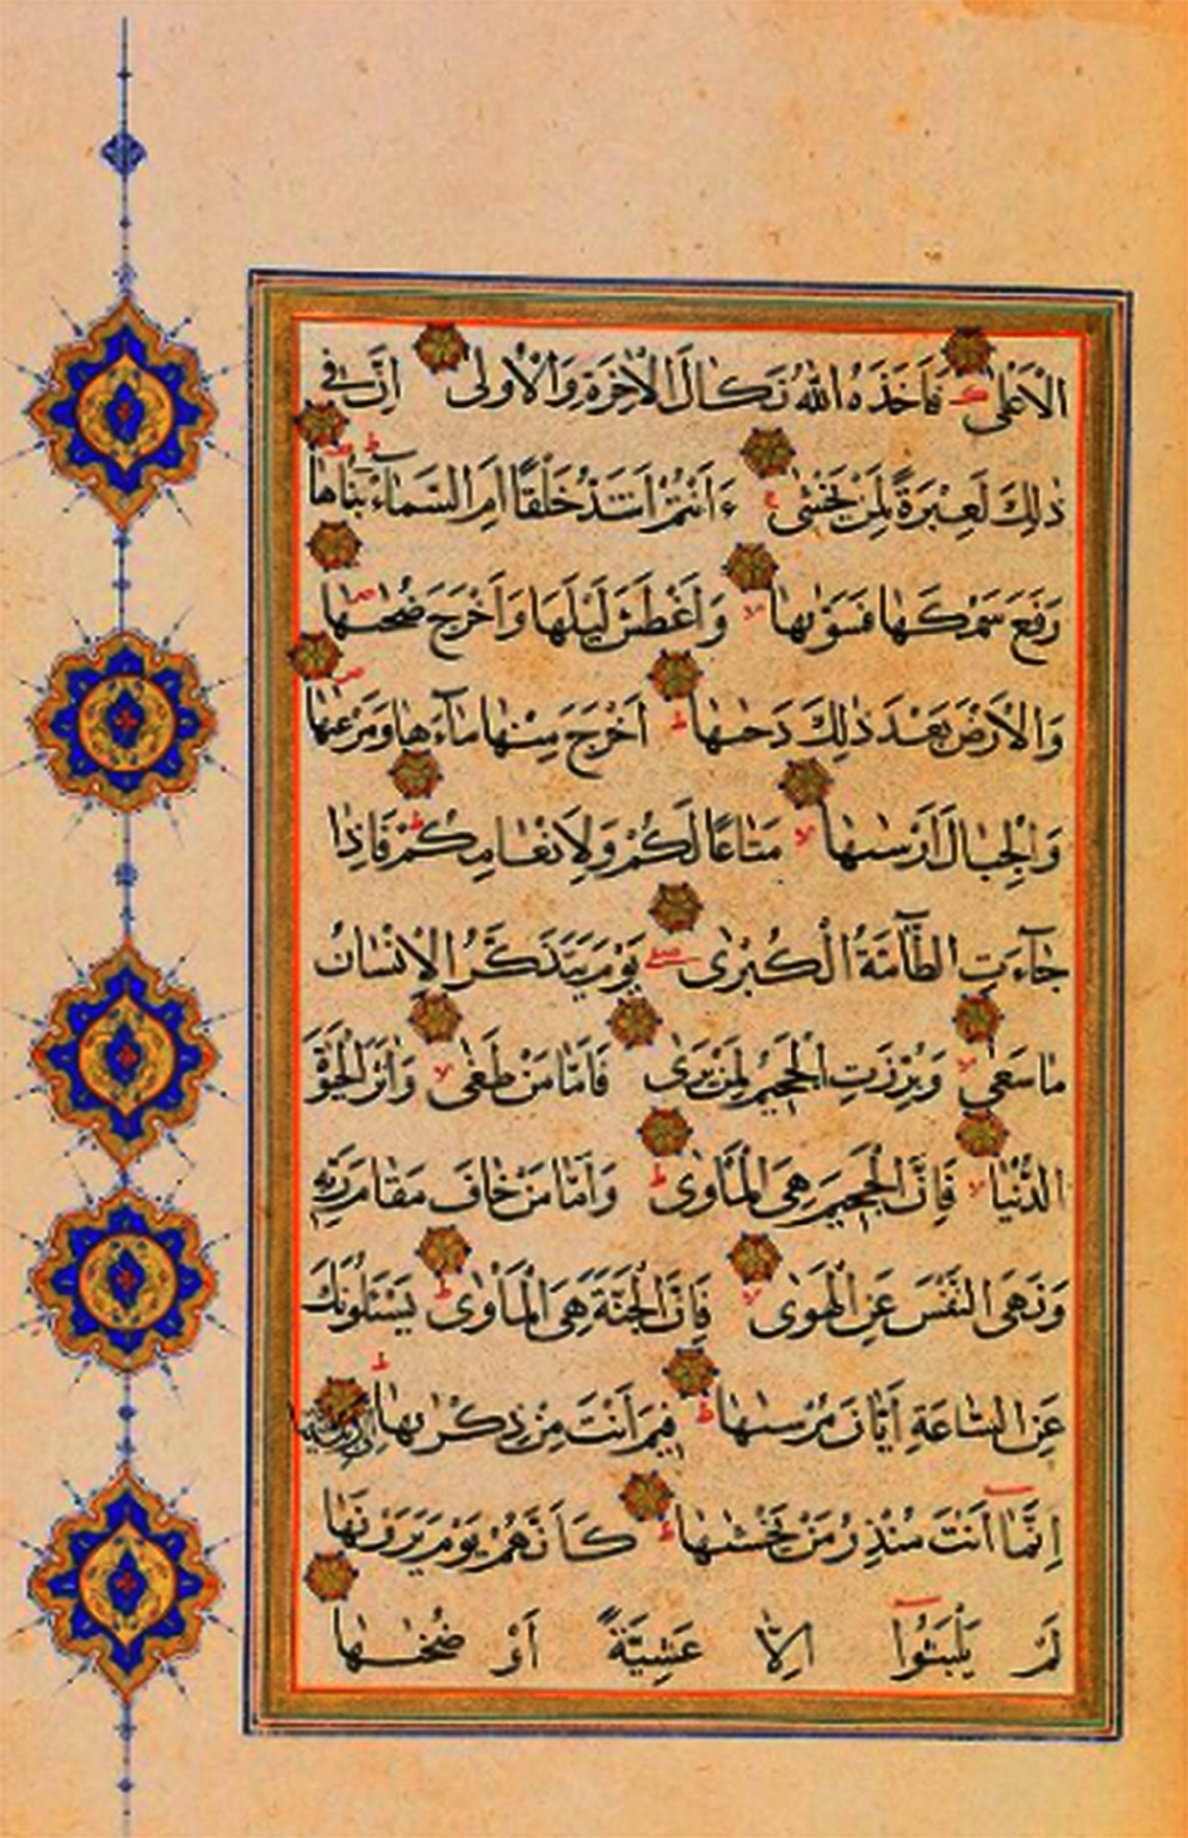 الْاَعْلٰى فَاَخَذَهُ اللّٰهُ نَكَالَ الْاٰخِرَةِ وَالْاُولٰى اِنَّ فٖى
ذٰلِكَ لَعِبْرَةً لِمَنْ يَخْشٰى ءَاَنْتُمْ اَشَدُّ خَلْقًا اَمِ السَّمَآءُ بَنٰاهَا
رَفَعَ سَمْكَهَا فَسَوّٰیهَا وَاَغْطَشَ لَيْلَهَا وَاَخْرَجَ ضُحٰىهَا
وَالْاَرْضَ بَعْدَ ذٰلِكَ دَحٰىهَا اَخْرَجَ مِنْهَا مَآءَهَا وَمَرْعٰىهَا
وَالْجِبَالَ اَرْسٰىهَا مَتَاعًا لَكُمْ وَلِاَنْعَامِكُمْ فَاِذَا
جَآءَتِ الطَّآمَّةُ الْكُبْرٰى يَوْمَ يَتَذَكَّرُ الْاِنْسَانُ
مَا سَعٰى وَبُرِّزَتِ الْجَحٖيمُ لِمَنْ يَرٰى فَاَمَّا مَنْ طَغٰى وَاٰثَرَ الْحَيٰوةَ
الدُّنْيَا فَاِنَّ الْجَحٖيمَ هِىَ الْمَاْوٰى وَاَمَّا مَنْ خَافَ مَقَامَ رَبِّهٖ
وَنَهَى النَّفْسَ عَنِ الْهَوٰى فَاِنَّ الْجَنَّةَ هِىَ الْمَاْوٰى يَسْئَلُونَكَ
عَنِ السَّاعَةِ اَيَّانَ مُرْسٰىهَا فٖيمَ اَنْتَ مِنْ ذِكْرٰیهَا
اِنَّمَآ اَنْتَ مُنْذِرُ مَنْ يَخْشٰىهَا كَاَنَّهُمْ يَوْمَ يَرَوْنَهَا
لَمْ يَلْبَثُٓوا اِلَّا عَشِيَّةً اَوْ ضُحٰىهَا